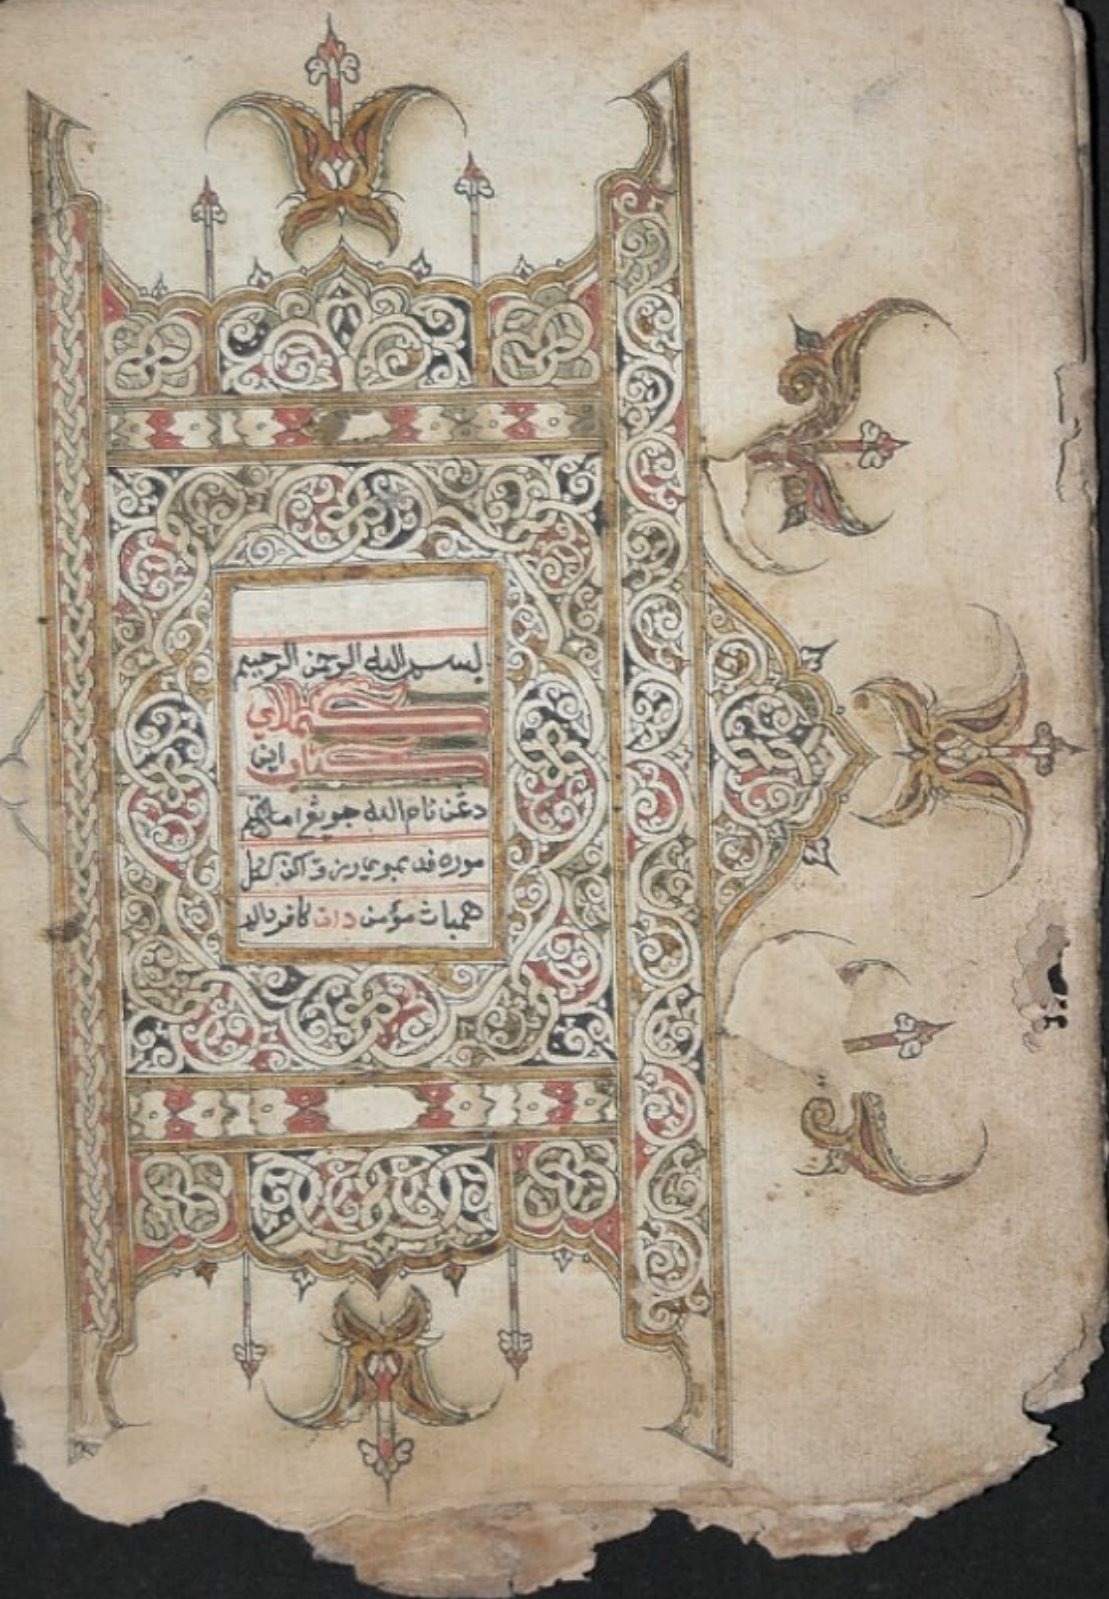 بسم الله الرحمن الرحيم
كملاي
كتاب اين
دڠن نام الله جو يڠ
موره فد رزق اكن سكل
همباث مؤمن دان كافر دالم